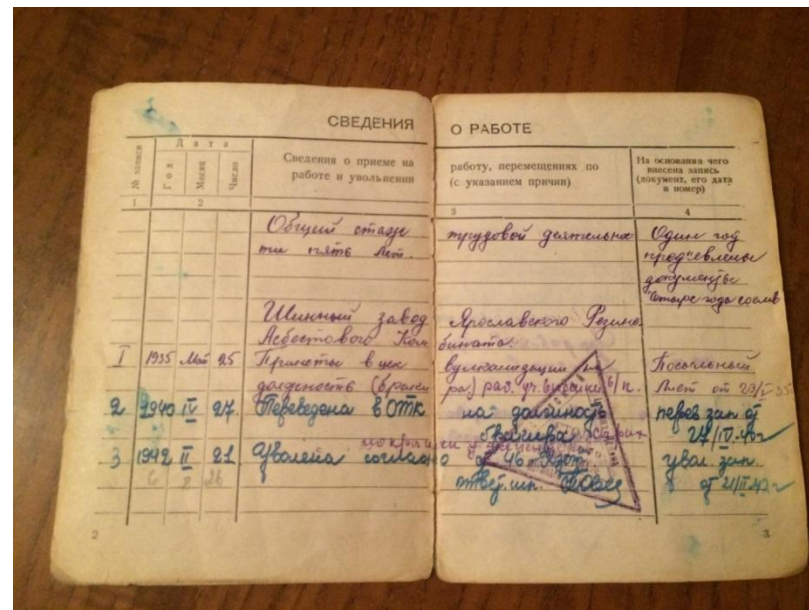 СВЕДЕНИЯ О РАБОТЕ
№ записи
Дата
Год
Месяц
Число
Сведения о приеме на работу, перемещениях по
работе и увольнении (с указанием причин)
На основании чего
внесена запись
(документ, его дата
и номер)
1 2 3 4
Общий стаж трудовой деятельнос- Один год
ти пять лет. предсевлены
документы
Четыре года со слов
Шинный завод Ярославского Резино
Асбестового Комбината.
I 1935 Май 25 Принеты в цех вулканизации на Посыльный
должность (браке ра) раб. Лист от 23/V-35
2 1940 IV 27 Переведена в ОТК на должность перев зап от
бракера 27/IV-40г
3 1942 II 21 Уволена согласно ст 46 увол. зап.
ответ. исп. от 21/II-42г
2 3